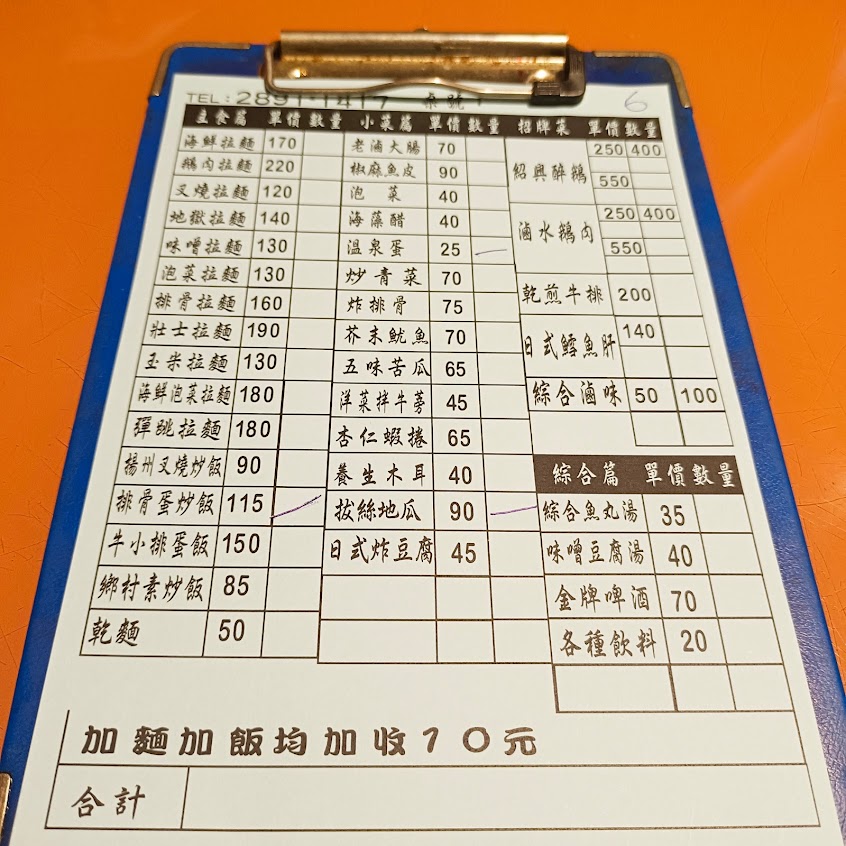 TEL:2891-1417 桌號: 6
主食篇 單價 數量
海鮮拉麵 170
鵝肉拉麵 220
叉燒拉麵 120
地獄拉麵 140
味噌拉麵 130
泡菜拉麵 130
排骨拉麵 160
壯士拉麵 190
玉米拉麵 130
海鮮泡菜拉麵 180
彈跳拉麵 180
揚州叉燒炒飯 90
排骨蛋炒飯 115
牛小排蛋飯 150
鄉村素炒飯 85
乾麵 50
小菜篇 單價 數量
老滷大腸 70
椒麻魚皮 90
泡菜 40
海藻醋 40
溫泉蛋 25
炒青菜 70
炸排骨 75
芥末魷魚 70
五味苦瓜 65
洋菜拌牛蒡 45
杏仁蝦捲 65
養生木耳 40
拔絲地瓜 90
日式炸豆腐 45
招牌菜 單價 數量
紹興醉鵝 250 400
550
滷水鵝肉 250 400
550
乾煎牛排 200
日式鱈魚肝 140
綜合滷味 50 100
綜合篇 單價 數量
綜合魚丸湯 35
味噌豆腐湯 40
金牌啤酒 70
各種飲料 20
加麵加飯均加收10元
合計